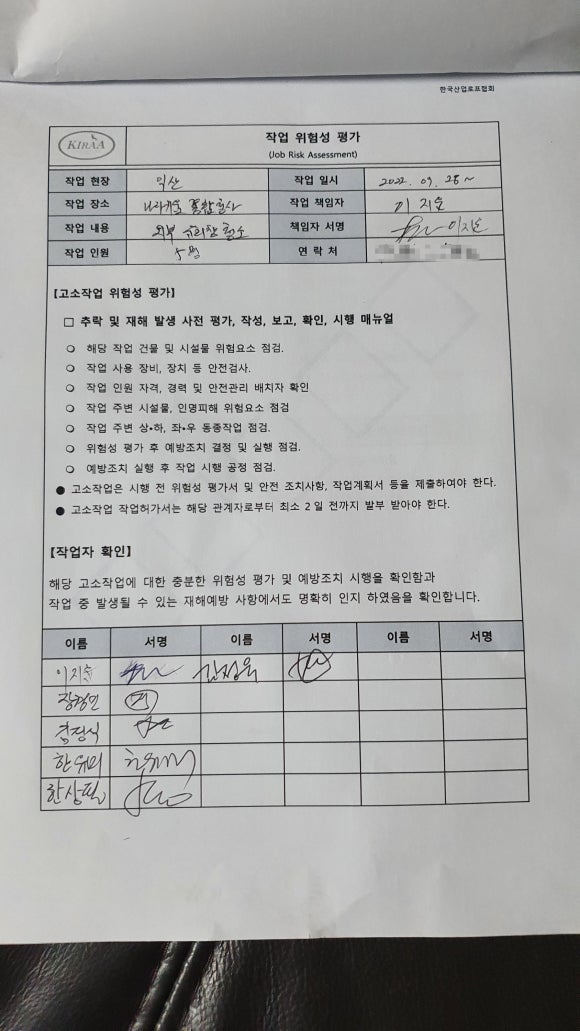 한국산업로프협회
KIRAA
작업 위험성 평가
(Job Risk Assessment)
작업 현장 익산 작업 일시 2022. 09. 28 ~
작업 장소 작업 책임자 이 지호
작업 내용 외부 유리창 청소 책임자 서명 이지호
작업 인원 5명 연 락 처
[고소작업 위험성 평가]
□ 추락 및 재해 발생 사전 평가, 작성, 보고, 확인, 시행 매뉴얼
○ 해당 작업 건물 및 시설물 위험요소 점검.
○ 작업 사용 장비, 장치 등 안전검사.
○ 작업 인원 자격, 경력 및 안전관리 배치자 확인
○ 작업 주변 시설물, 인명피해 위험요소 점검
○ 작업 주변 상•하, 좌•우 동종작업 점검.
○ 위험성 평가 후 예방조치 결정 및 실행 점검.
○ 예방조치 실행 후 작업 시행 공정 점검.
● 고소작업은 시행 전 위험성 평가서 및 안전 조치사항, 작업계획서 등을 제출하여야 한다.
● 고소작업 작업허가서는 해당 관계자로부터 최소 2 일 전까지 발부 받아야 한다.
[작업자 확인]
해당 고소작업에 대한 충분한 위험성 평가 및 예방조치 시행을 확인함과
작업 중 발생될 수 있는 재해예방 사항에서도 명확히 인지 하였음을 확인합니다.
이름 서명 이름 서명 이름 서명
이지호
한상필